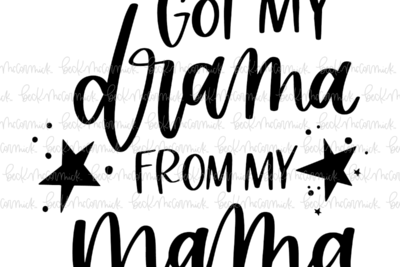 GOT MY
drama
FROM MY
mama